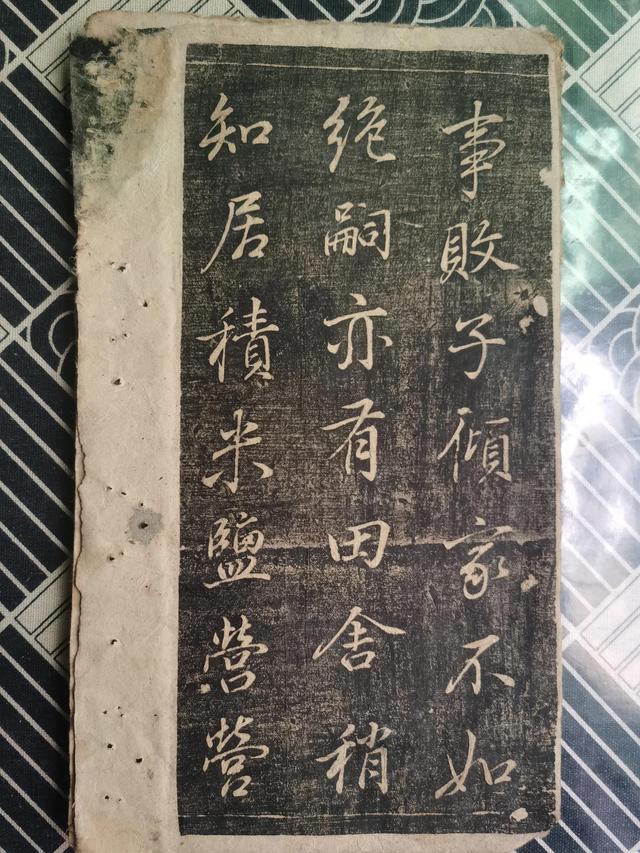 事敗子傾家不如
絶嗣亦有田舍稍
知居積米鹽營營